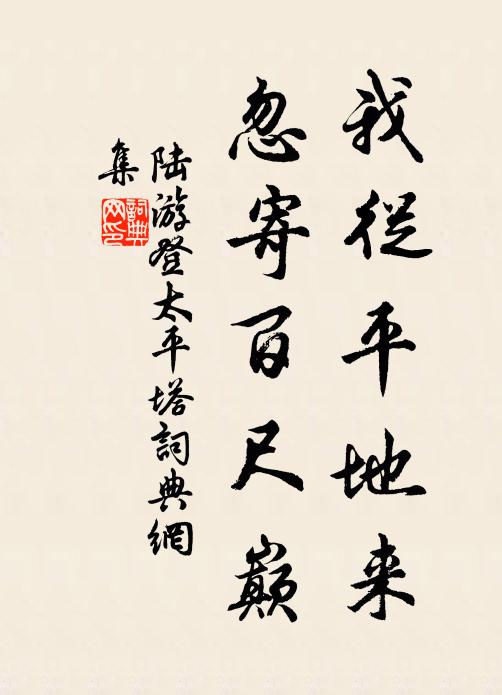 我從平地来
忽寄百尺巔
陆游登太平塔詞典網
集
詞典
网印